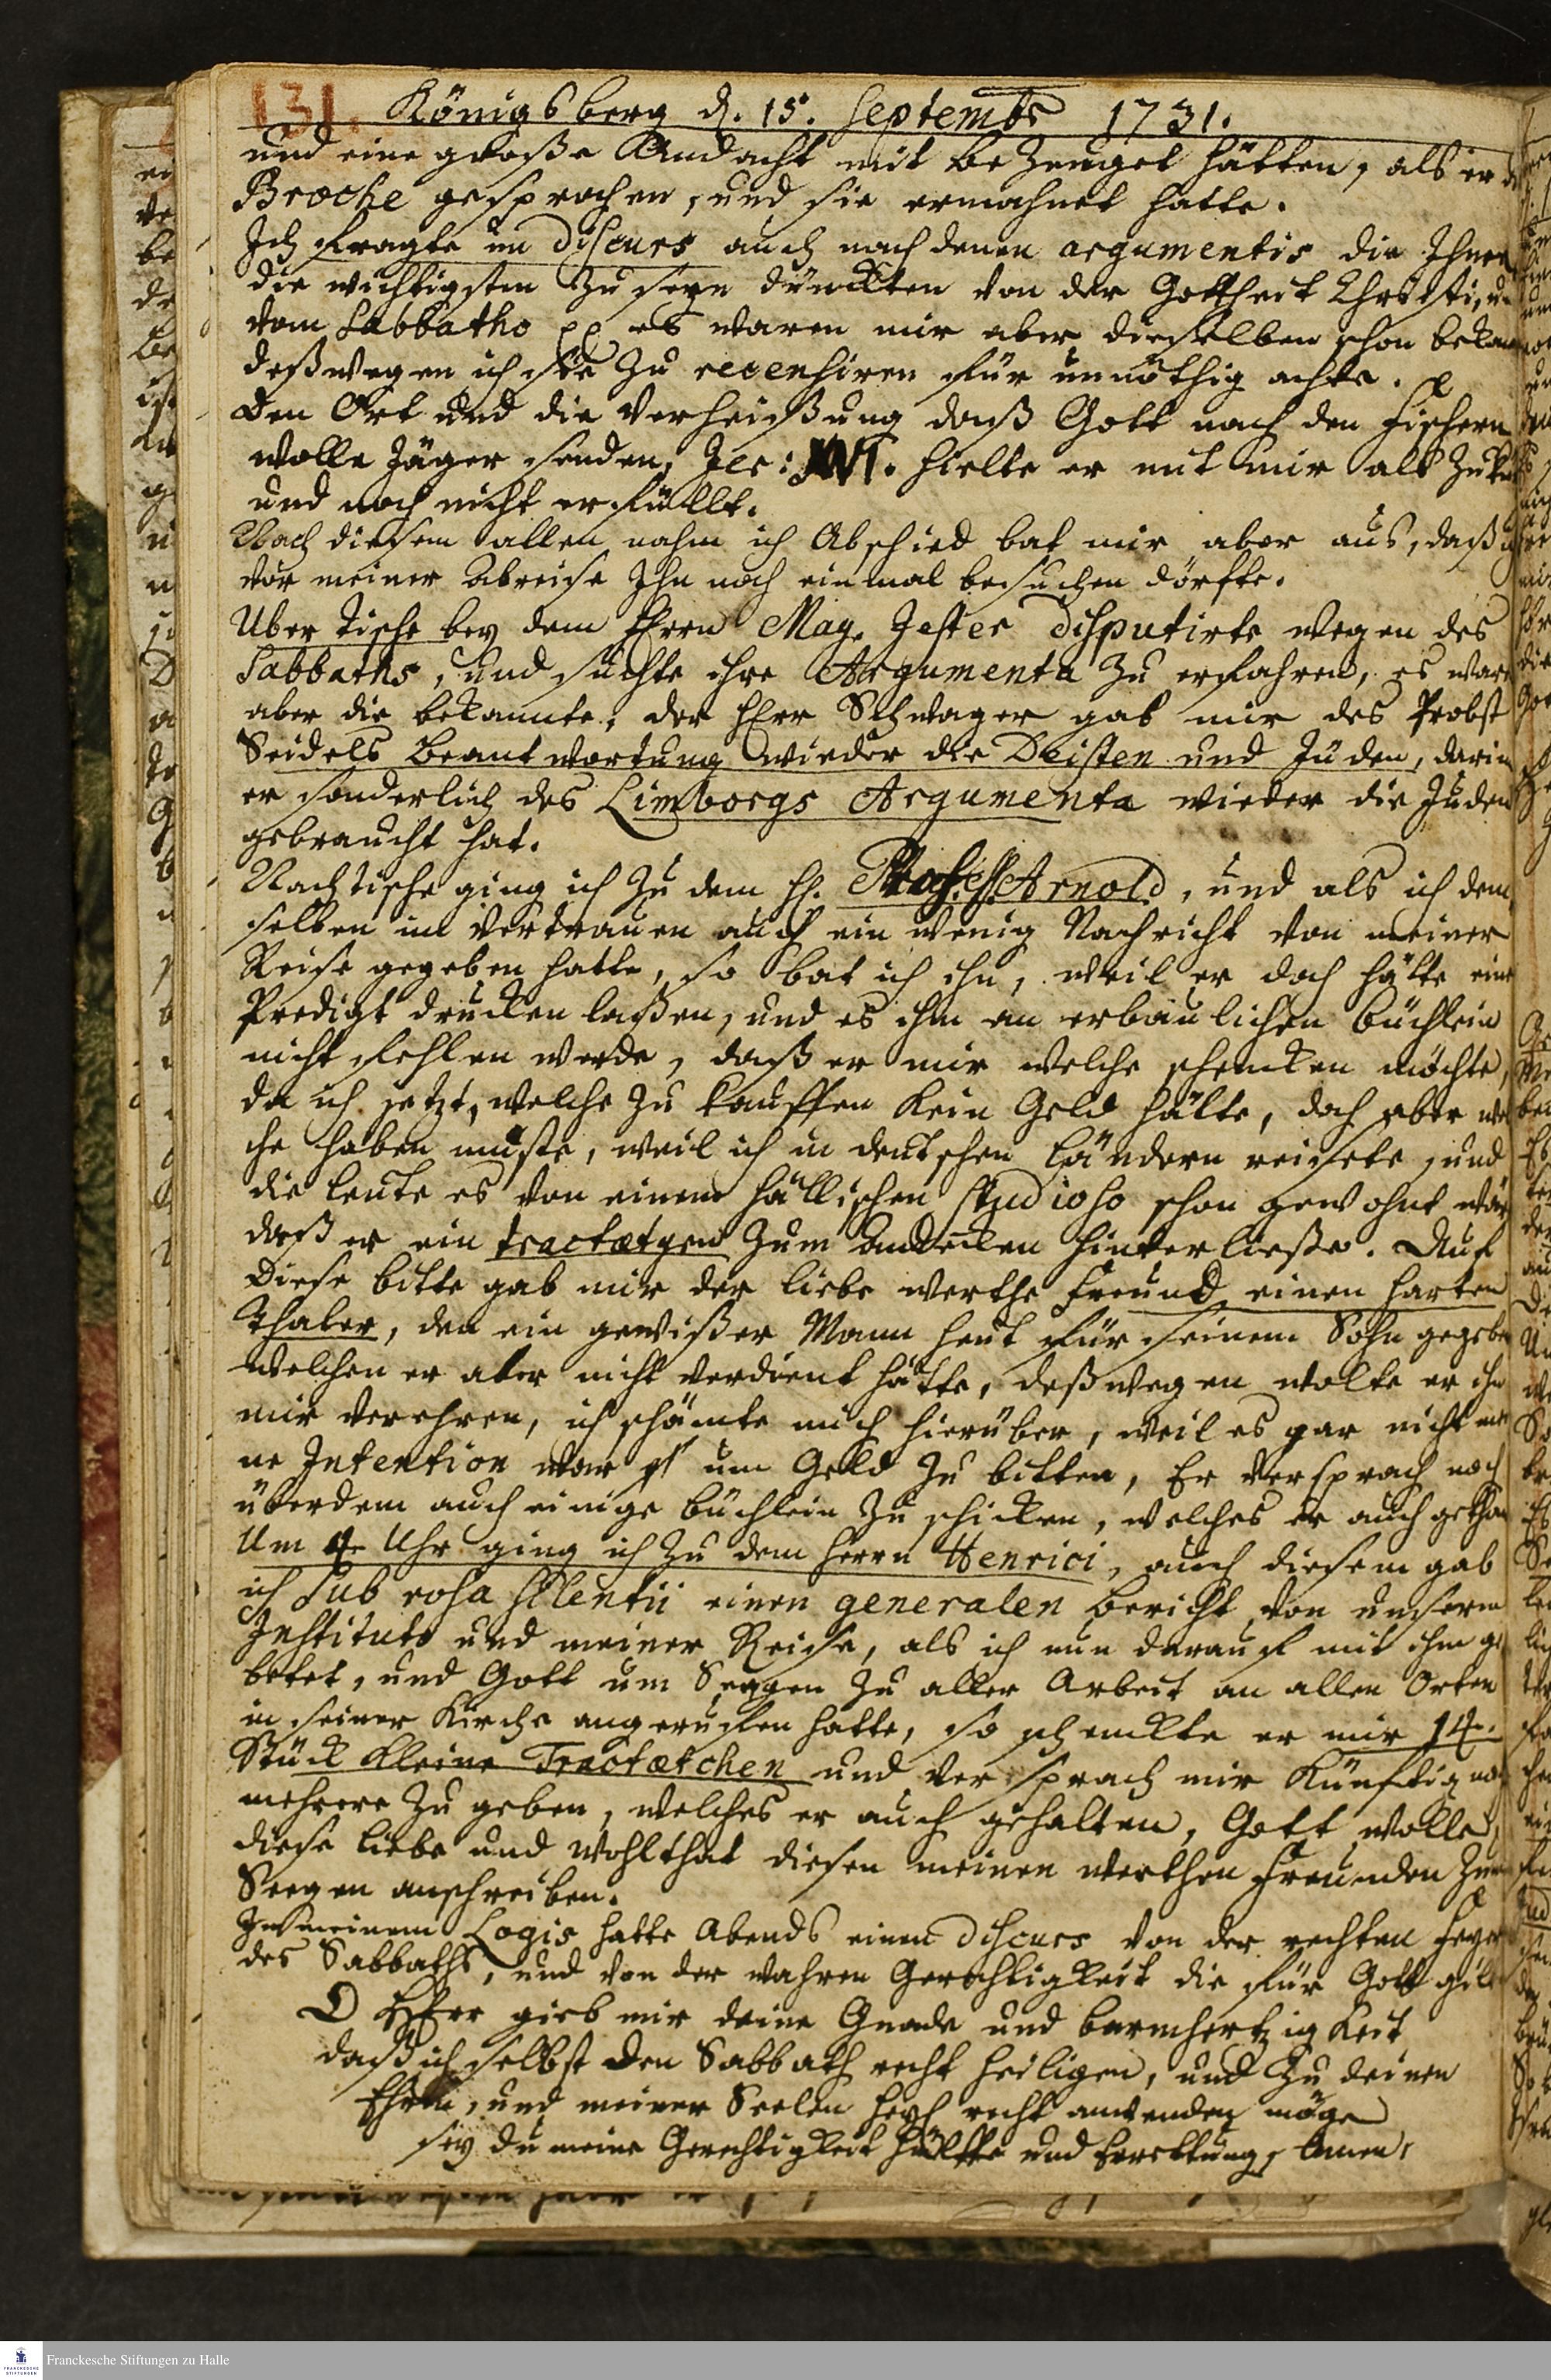 131. Königsberg d. 15. Septembr 1731.
und eine große Andacht mit bezeuget hätten, als er d
Broche gesprochen, und sie ermahnet hatte.
Ich fragte im discurs auch nach denen argumentis die Ihnen
die wichtigsten zu seyn dünckten von der Gottheit Christi, u
vom Sabbatho pp es waren mir aber dieselben schon bekan
deßwegen ich sie zu recensiren für unnöthig achte.
Den Ort und die Verheißung daß Gott nach den Fischern
wolle Jäger senden, Jer: XVI. hielte er mit mir als zuk
und noch nicht erfüllt.
Nach diesem allen nahm ich Abschied bat mir aber aus, daß i
vor meiner Abreise Ihn noch einmal besuchen dörfte.
Uber Tische bey dem Herrn Mag. Jester disputirte wegen des
Sabbaths, und suchte ihre Argumenta zu erfahren, es ware
aber die bekannte, der Herr Schwager gab mir des Probst
Seidels Beantwortung wieder die Deisten und Juden, darin
er sonderlich des Limborgs Argumenta wieder die Juden
gebraucht hat.
Nach Tische ging ich zu dem H. Profess Arnold, und als ich dem
selben im Vertrauen auch ein wenig Nachricht von meiner
Reise gegeben hatte, so bat ich ihn, weil er doch hätte eine
Predigt drucken laßen, und es ihm an erbaulichen Büchlein
nicht fehlen werde, daß er mir welche schencken möchte,
da ich jetzt, welche zu kauffen kein Geld hätte, doch aber wel
che haben müste, weil ich in deutschen Ländern reisete, und
die Leute es von einem hällischen Studioso schon gewohnt wär
daß er ein tractætgen zum Andencken hinterließe. Auf
Diese bitte gab mir der liebe werthe Freund einen harten
Thaler, den ein gewißer Mann heut für seinem Sohn gegebe
welchen er aber nicht verdient hätte, deßwegen wolte er ihn
mir verehren, ich schämte mich hierüber, weil es gar nicht mei
ne Intention war um Geld zu bitten, Er versprach noch
überdem auch einige Büchlein zu schicken, welches er auch gethan
Um 4 Uhr ging ich zu dem Herrn Henrici, auch diesem gab
ich sub rosa silentii einen generalen bericht von unserm
Instituto und meiner Reise, als ich nun darauf mit ihm ge
betet, und Gott um Seegen zu aller Arbeit an allen Orten
in seiner Kirche angeruffen hatte, so schenckte er mir 14.
Stück kleine Tractætchen und versprach mir künftig noch
mehrere zu geben, welches er auch gehalten, Gott wolle
diese Liebe und Wohlthat diesen meinen werthen Freunden zum
Seegen anschreiben.
In meinem Logis hatte Abends einen discurs von der rechten Feyer
des Sabbaths, und von der wahren Gerechtigkeit die für Gott gilt
O HErr gieb mir deine Gnade und barmhertzigkeit
daß ich selbst den Sabbath recht heiligen, und zu deinen
Ehren, und meiner Seelen recht anwenden möge
sey du meine Gerechtigkeit Hülffe und Errettung, Amen.
Franckesche Stiftungen zu Halle